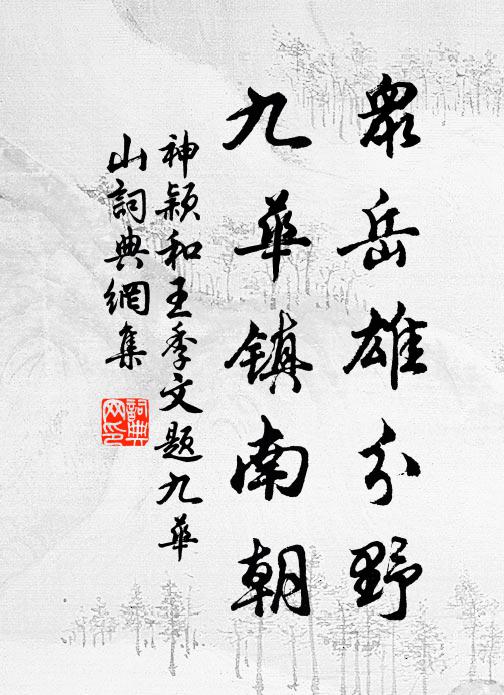 眾岳雄分野
九華镇南朝
神颖和王季文题九華
山詞典網集
詞典
网印